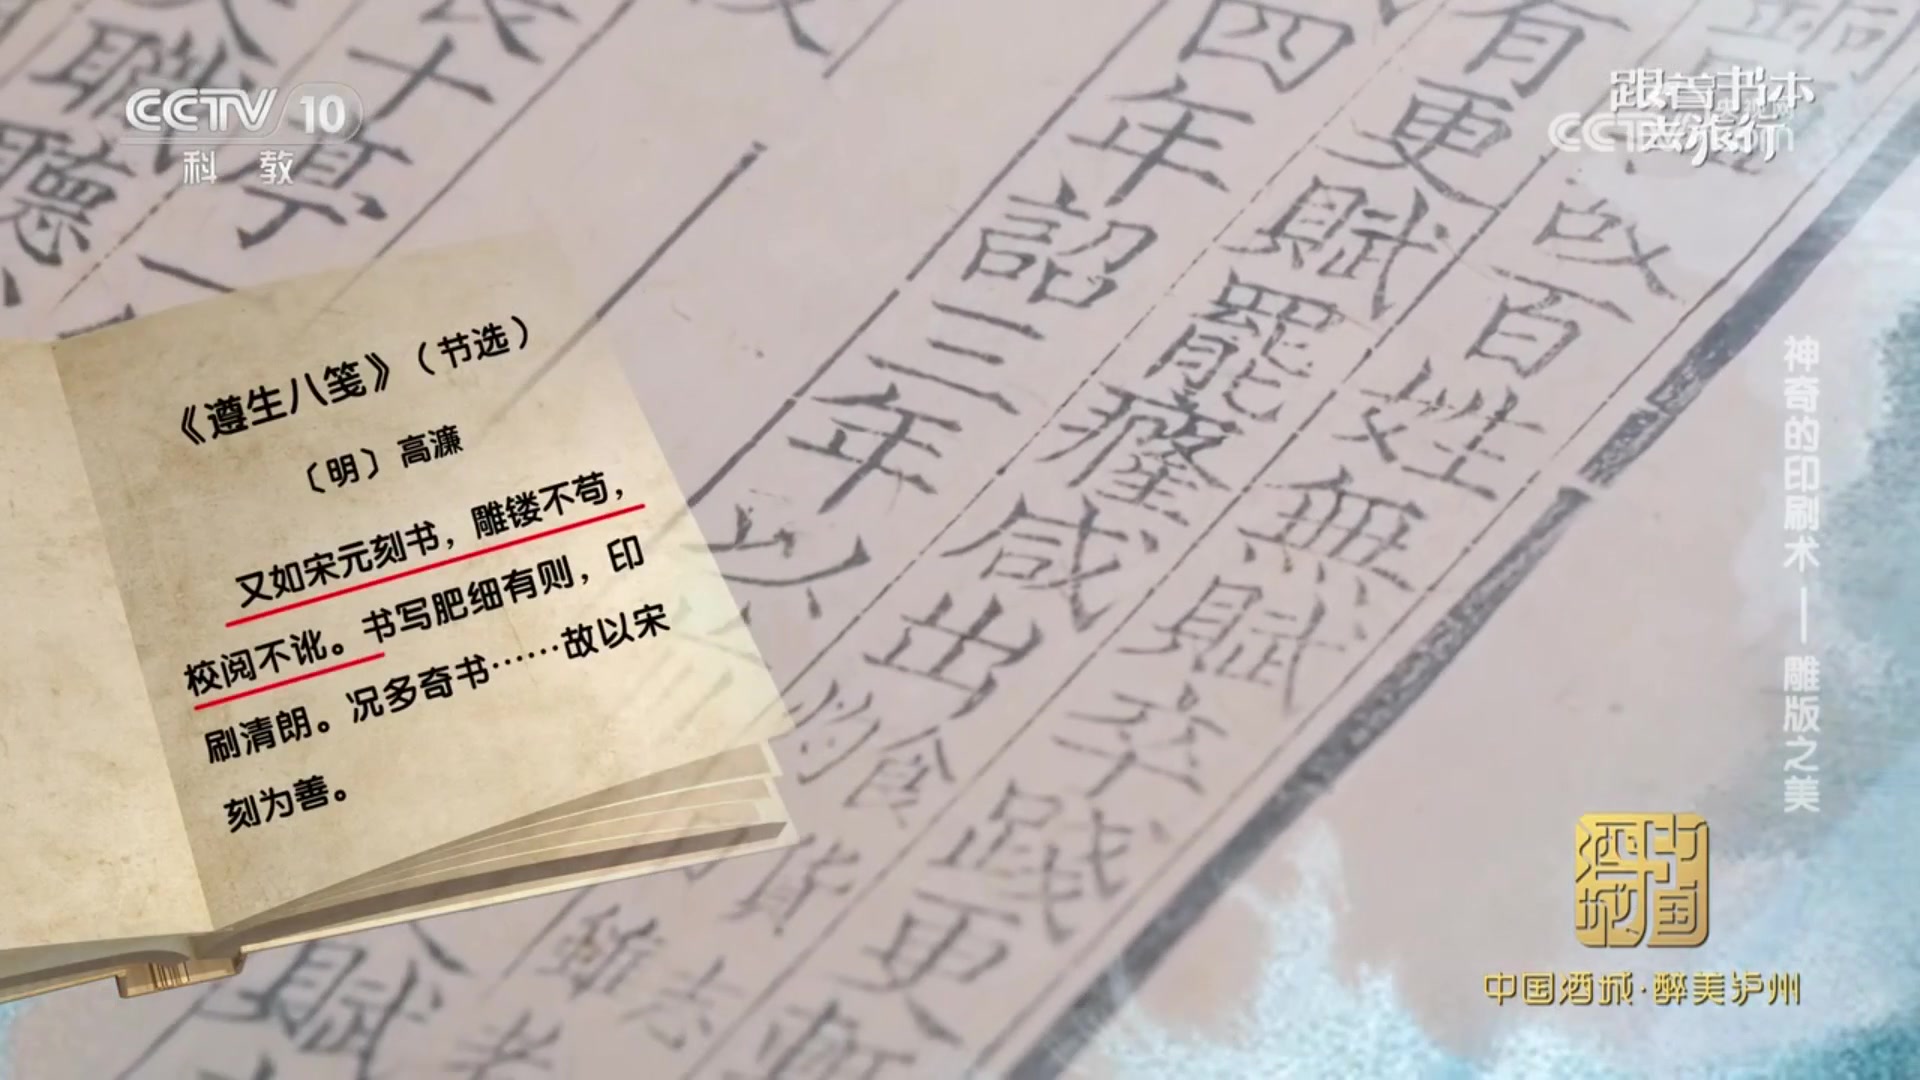 CCTV 10
科教
跟着书本
去旅行
《遵生八笺》（节选）
〔明〕高濂
又如宋元刻书，雕镂不苟，
校阅不讹。书写肥细有则，印
刷清朗。况多奇书……故以宋
刻为善。
神奇的印刷术——雕版之美
改百姓無賦
有更賦罷癃咸出
卒踐更
四年詔三年以
食
貨
雖志
長十
職
聽
賦
者
中国酒城
中国酒城·醉美泸州